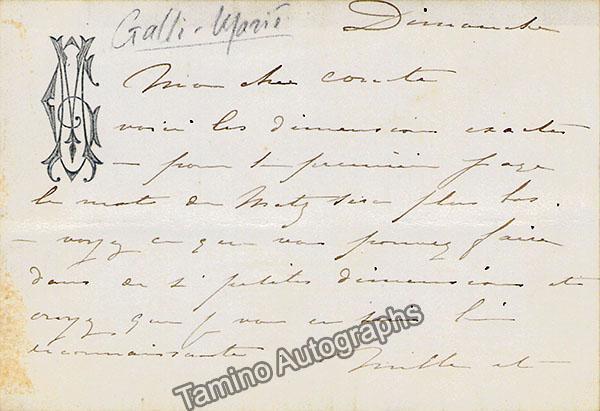 Galli-Marié
Dimanche
Mon cher comte
voici les dimensions exactes
— pour la première page
le mot de Metz sera plus bas.
— voyez ce que vous pouvez faire
dans de si petites dimensions et
croyez que j vous en serai bien
reconnaissante Mille et
Tamino Autographs